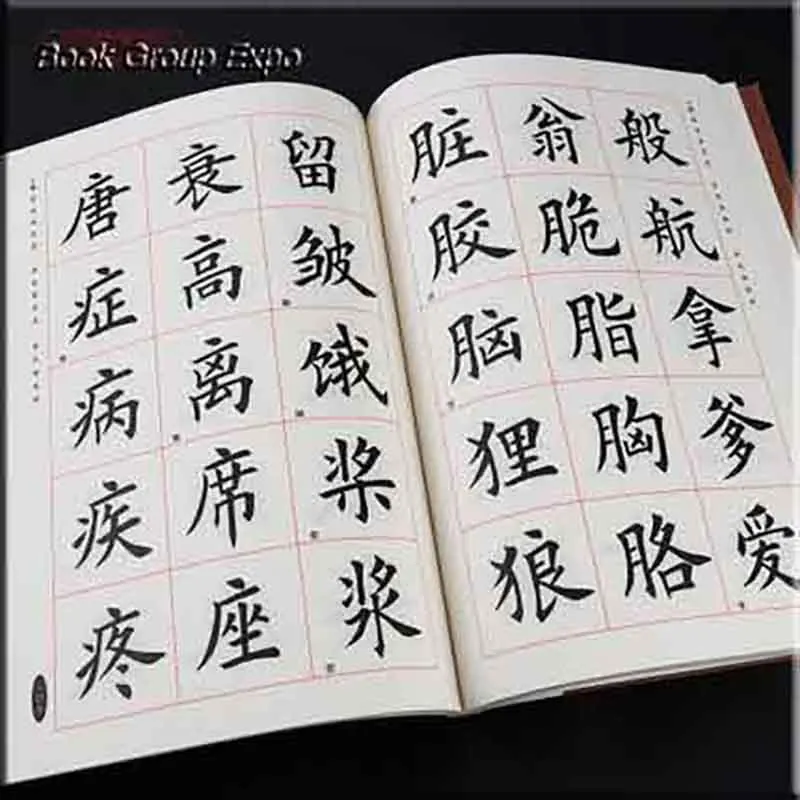 Book Group Expo
般航拿爹爱
翁脆脂胸胳
脏胶脑狸狼
留皱饿桨浆
衰高离席座
唐症病疾疼